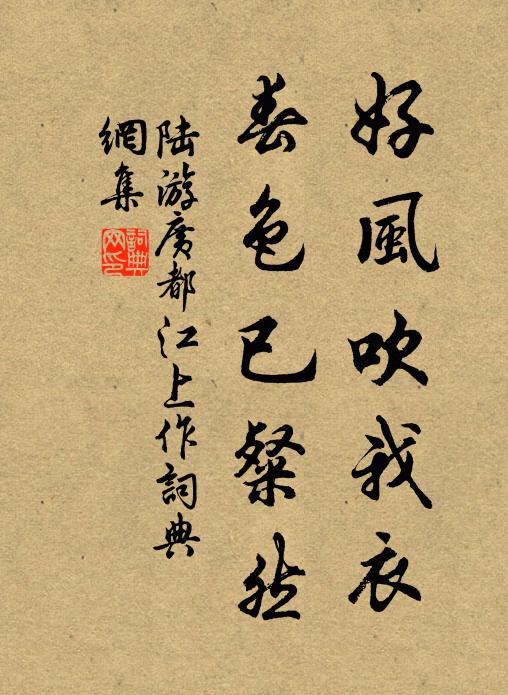 好風吹我衣
春色已粲然
陸游廣都江上作詞典
網集
詞典
网印